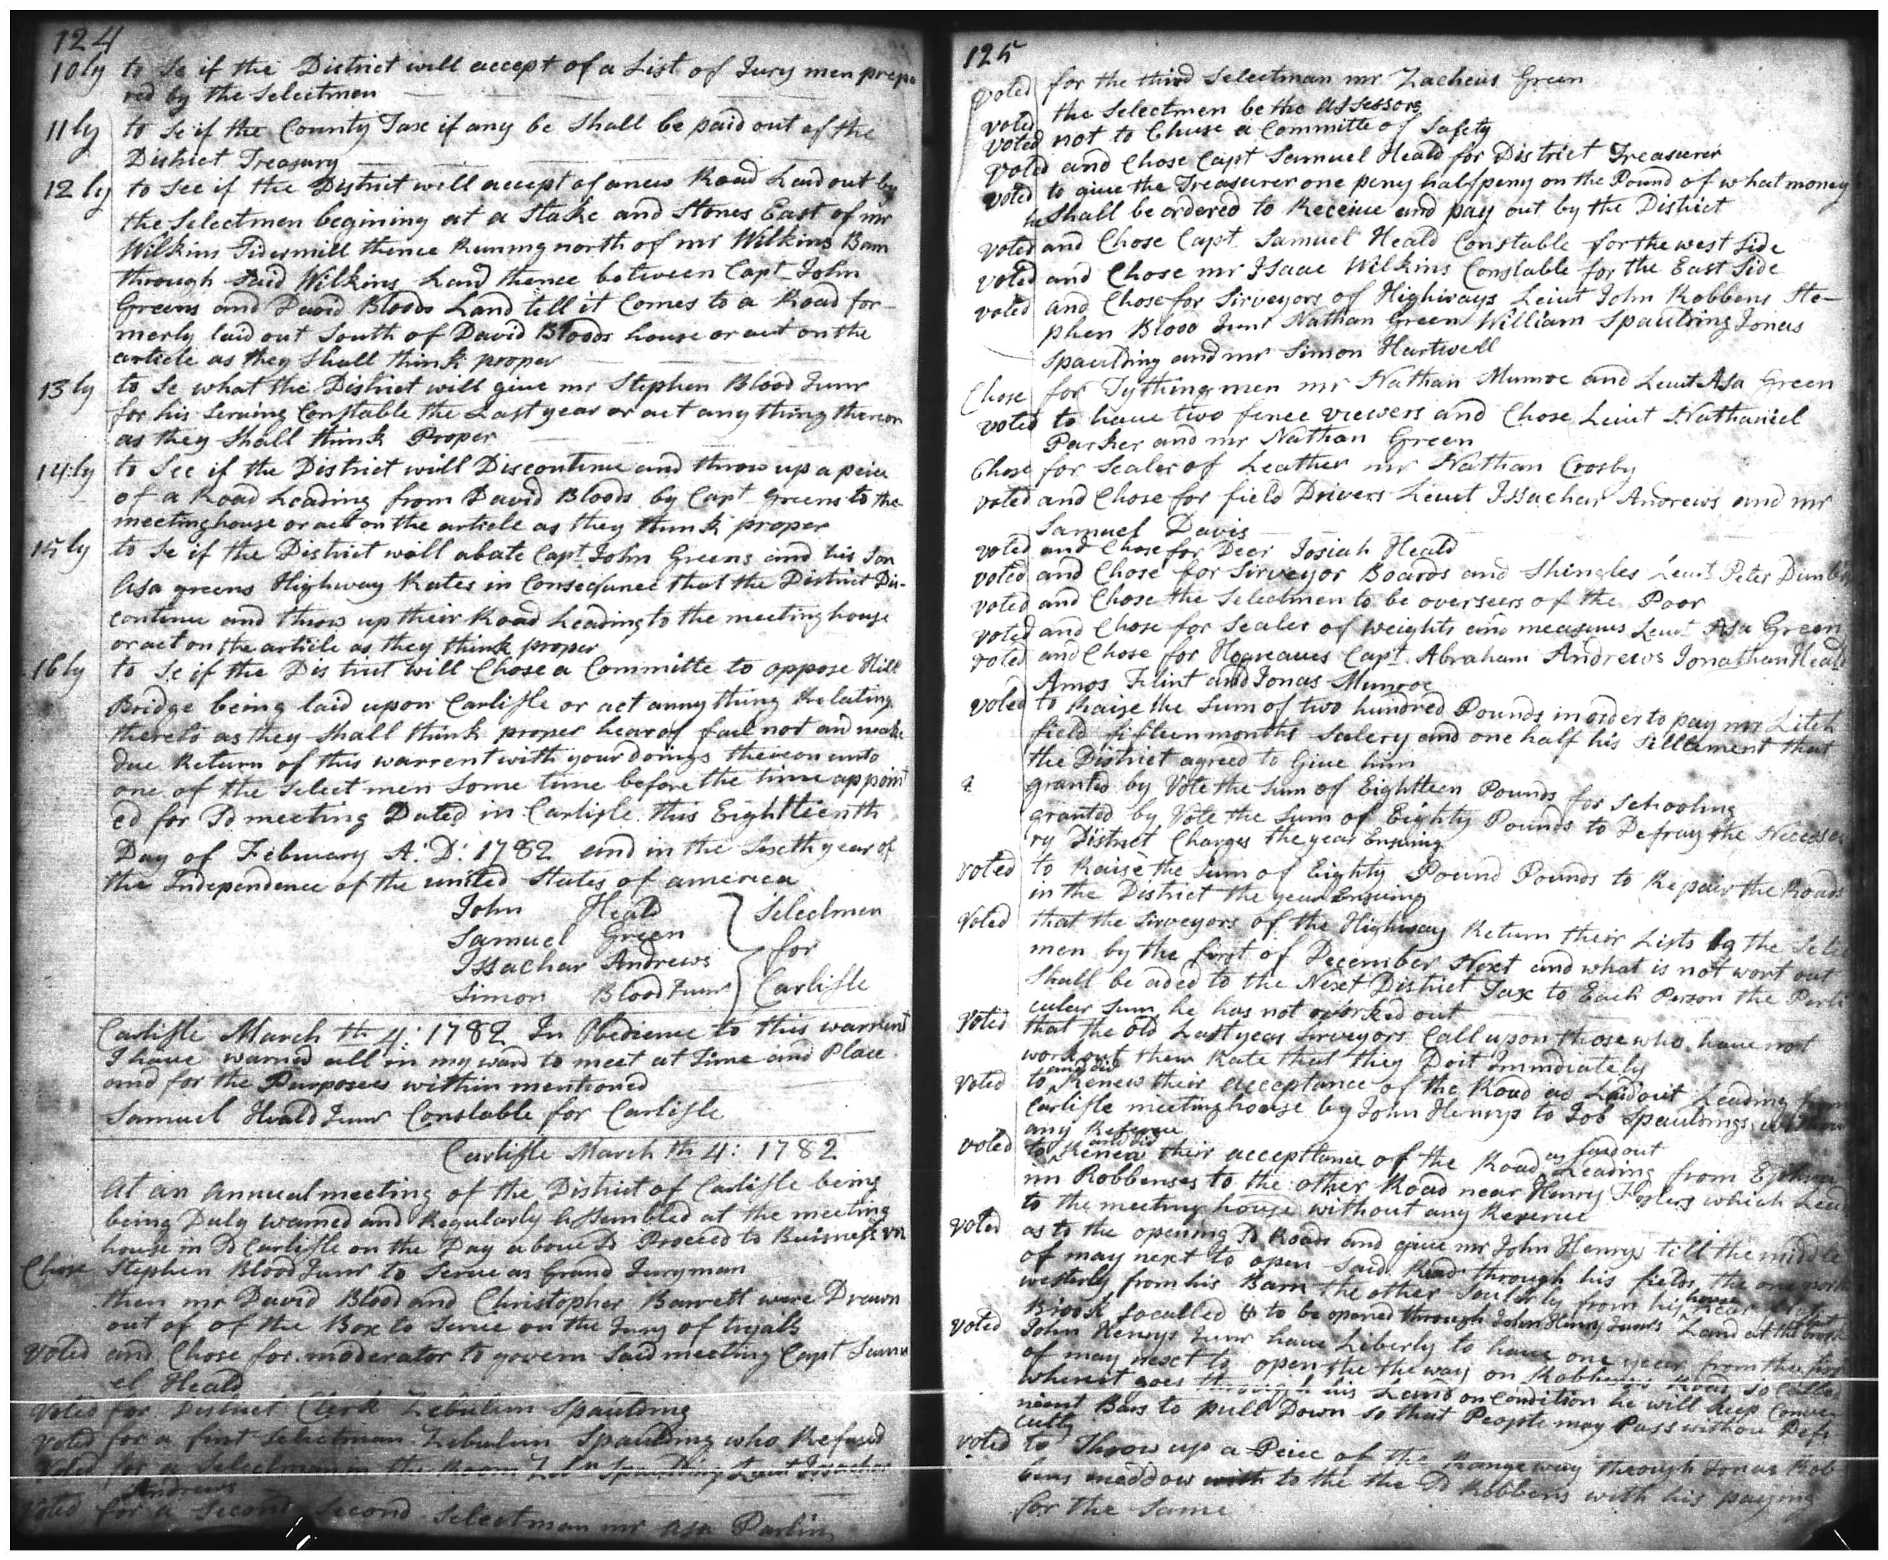 124
10ly to Se if the District will accept of a List of Jury men prepa
red by the Selectmen
11ly to Se if the County Tax if any be Shall be paid out of the
District Treasury
12ly to See if the District will accept of a new Road Laid out by
the Selectmen begining at a Stake and Stones East of mr
Wilkins Sidermill thence Runing north of mr Wilkins Barn
through Said Wilkins Land thence between Capt John
Greens and David Bloods Land tell it Comes to a Road for-
merly laid out South of David Bloods house or act on the
article as they Shall think proper
13ly to Se what the District will give mr Stephen Blood Junr
for his Serving Constable the Last year or act any thing thereon
as they Shall think Proper
14ly to See if the District will Discontinue and throw up a peice
of a Road Leading from David Bloods by Capt Greens to the
meetinghouse or act on the article as they think proper
15ly to Se if the District will abate Capt John Greens and his Son
Asa greens Highway Rates in Consequnce that the District Dis-
continue and throw up their Road Leading to the meeting house
or act on the article as they think proper
16ly to Se if the District will Chose a Committe to oppose Hill
Bridge being laid upon Carlisle or act anny thing Relating
thereto as they Shall think proper hearof fail not and make
due Return of this warrent with your doings thereon unto
one of the Select men Some time before the time appoint
ed for Sd meeting Dated in Carlisle this Eighteenth
Day of February A: D: 1782 and in the Sixth year of
the Independence of the united States of america
John Heald
Samuel Green
Issachar Andrews
Simon Blood Junr
Selectmen
for
Carlisle
Carlisle March th 4: 1782 In Obedience to this warrent
I have warned all in my ward to meet at Time and Place
and for the Purposees within mentioned
Samuel Heald Junr Constable for Carlisle
Carlisle March th 4: 1782
At an Annual meeting of the District of Carlisle being
being Duly warned and Regularly Assembled at the meeting
house in Sd Carlisle on the Day above Sd Proceed to Buisness
Chose Stephen Blood Junr to Serve as Grand Juryman
then mr David Blood and Christopher Barrett were Drawn
out of of the Box to Serve on the Jury of tryals
Voted and Chose for moderator to govern Said meeting Capt Samu
el Heald
Voted for District Clerk Zebulun Spaulding
Voted for a first Selectman Zebulun Spaulding who Refused
Voted for a Selectman in the Room Spaulding Leut Issachar
Andrews
Voted for a Second Second Selectman mr Asa Parlin
125
Voted for the third Selectman mr Zacheus Green
voted the Selectmen be the Assessors
voted not to Chuse a Committe of Safety
Voted and Chose Capt Samuel Heald for District Treasurer
voted to give the Treasurer one peny half peny on the Pound of what money
he Shall be ordered to Receive and pay out by the District
voted and Chose Capt Samuel Heald Constable for the west Side
voted and Chose mr Isaac Wilkins Constable for the East Side
voted and Chose for Sirveyors of Highways Leiut John Robbens Ste-
phen Blood Junr Nathan Green William Spaulding Jonas
Spaulding and mr Simon Hartwell
Chose for Tythingmen mr Nathan Munroe and Leut Asa Green
voted to have two fence viewers and Chose Leiut Nathaniel
Parker and mr Nathan Green
Chose for Sealer of Leather mr Nathan Crosby
voted and Chose for field Drivers Leut Issachar Andrews and mr
Samuel Davis
voted and Chose for Deer Josiah Heald
voted and Chose for Sirveyor Boards and Shingles Leut Peter
voted and Chose the Selectmen to be overseers of the Poor
voted and Chose for Sealer of weights and measures Leut Asa Green
voted and Chose for Hogreaves Capt Abraham Andrews Jonathan Heald
Amos Flint and Jonas Munroe
voted to Raise the Sum of two hundred Pounds in order to pay mr Litch
field fifteen months Salery and one half his Sittlement that
the District agreed to Give him
granted by Vote the Sum of Eighteen Pounds for Schooling
granted by Vote the Sum of Eighty Pounds to Defray the Necessa
ry District Charges the year Ensuing
voted to Raise the Sum of Eighty Pound Pounds to Repair the Roads
in the District the year Ensuing
Voted that the Sirveyors of the Highway Return their Lists to the Selec
men by the first of December Next and what is not wort out
Shall be aded to the Next District Tax to Each Person the Perti
culer Sum he has not worked out
Voted that the old Last year Sirveyors Call upon those who have not
work out their Rate that they Doit Immediately
Voted to Renew their acceptance of the Road as Laid out Leading from
and did
Carlisle meetinghouse by John Henrys to Job Spauldings without
any Reserve
voted to Renew their acceptance of the Road as Laid out Leading from
and did
im Robbenses to the other Road near Henry Foslers which Lead
to the meeting house without any Reserve
voted as to the opening Sd Roads and give mr John Henrys till the middle
of may next to open Said Road through his fields the one north
westerly from his Barn the other Southerly from his house
Brook Socalled & to be opened through John Henry Junrs Land at the
voted John Henrys Junr have Liberty to have one year from the first
of may next to open the the way on Robbens Road So Called
where it goes through his Land on Condition he will keep Conve
nient Bars to pull Down So that People may Pass without Defi
culty
voted to Throw up a Peice of the Range way through Jonas Rob
bins meddow with to the the Sd Robbens with his paying
for the Same